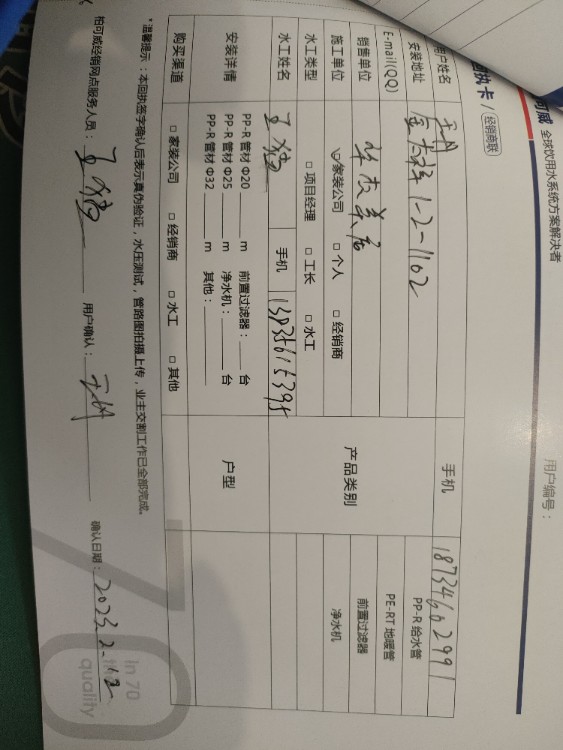 威 全球饮用水系统方案解决者
回执卡 / 经销商联
用户编号：
用户姓名
手机 18734602991
安装地址 1-2-1102
产品类别
PP-R 给水管
E-mail(QQ)
PE-RT 地暖管
销售单位
前置过滤器
施工单位 ☑家装公司 □ 个人 □ 经销商
净水机
水工类型 □ 项目经理 □ 工长 □ 水工
水工姓名 手机 13835615395
安装详情
PP-R 管材 Φ20 ____ m 前置过滤器：____ 台
PP-R 管材 Φ25 ____ m 净水机：____ 台
PP-R 管材 Φ32 ____ m 其他：____
户型
购买渠道 □ 家装公司 □ 经销商 □ 水工 □ 其他
*温馨提示：本回执签字确认后表示真伪验证，水压测试，管路图拍摄上传，业主交割工作已全部完成。
柏可威经销网点服务人员： 用户确认： 确认日期：2023.2.12
In 70
quality